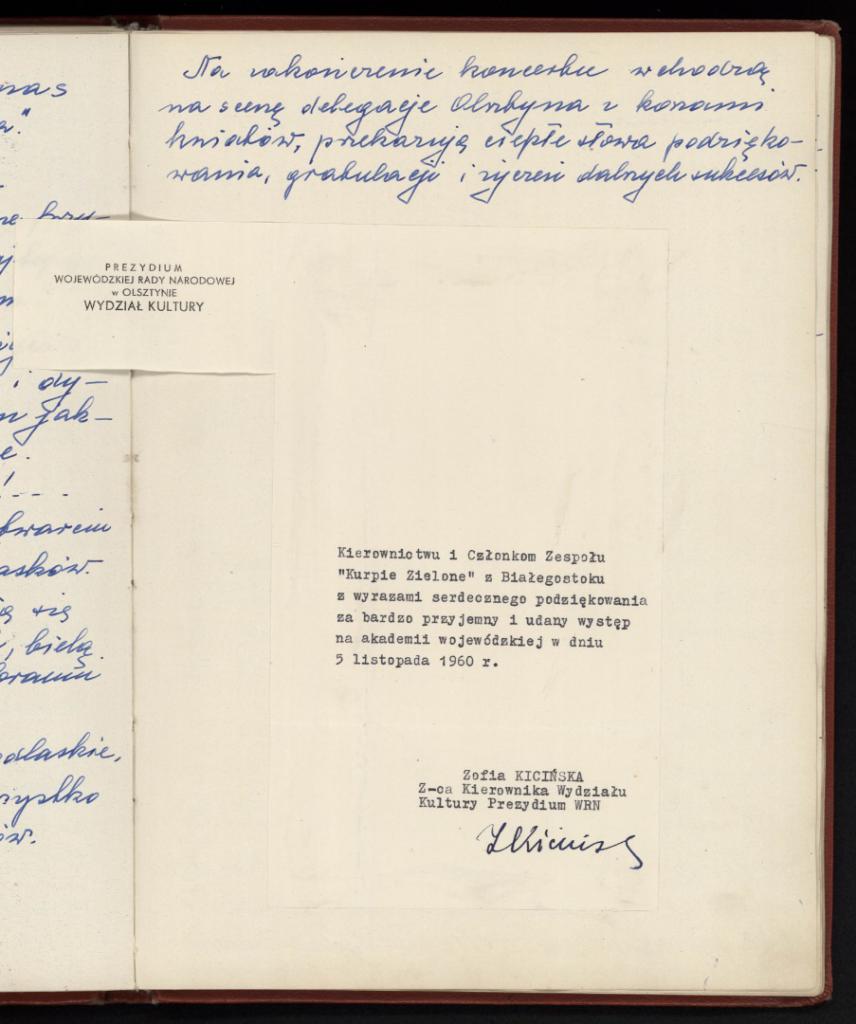 nas
Na zakończenie koncertu wchodzą
na scenę delegacje Olsztyna z koszami
kwiatów, przekazują ciepłe słowa podzięko-
wania, gratulacji i życzeń dalszych sukcesów.
PREZYDIUM
WOJEWÓDZKIEJ RADY NARODOWEJ
w OLSZTYNIE
WYDZIAŁ KULTURY
i dy-
jak-
Kierownictwu i Członkom Zespołu
"Kurpie Zielone" z Białegostoku
z wyrazami serdecznego podziękowania
za bardzo przyjemny i udany występ
na akademii wojewódzkiej w dniu
5 listopada 1960 r.
się
, bielą
Zofia KICIŃSKA
Z-ca Kierownika Wydziału
Kultury Prezydium WRN
ZKicińs